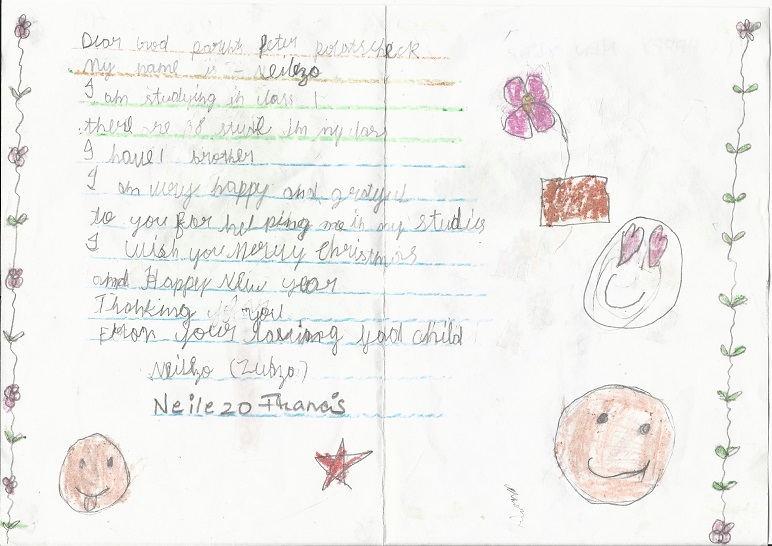 Dear God parent Peter
My name is - Neilezo
I am studying in class 1
there are 18 stude in my clas
I have 1 brother
I am very happy and grateful
to you for helping me in my studies
I wish you Merry Christmas
and Happy New year
Thanking you
From your loving god child
Neilezo (Zubzo)
Neilezo Francis